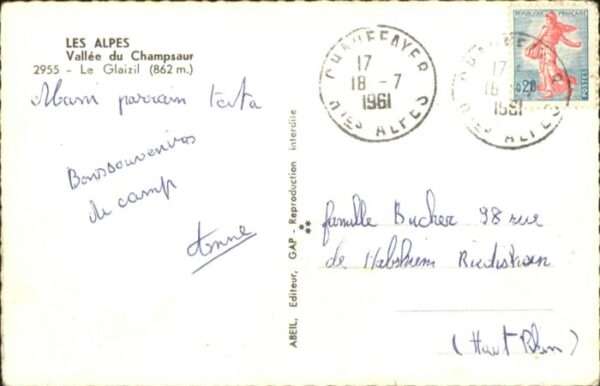 LES ALPES
Vallée du Champsaur
2955 - Le Glaizil (862 m.)
Mami parrain tata
Bons souvenirs
du camp
Anne
ABEIL, Editeur, GAP - Reproduction interdite
CHAUFFAYER
17
18 -7
1961
Htes ALPES
17
18
1961
Htes ALPES
REPUBLIQUE FRANÇAISE
0,20
POSTES
famille Bucher 98 rue
de Habsheim Riedisheim
(Haut Rhin)